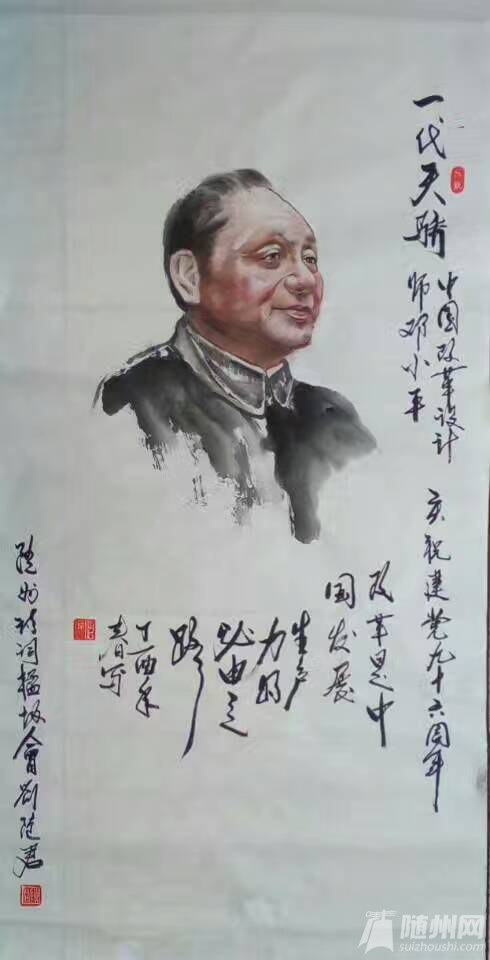 一代天骄
中国改革设计
师邓小平
庆祝建党九十六周年
改革是中
国发展
生产
力的
必由之
路
丁酉年
写
随州诗词楹
随州网
suizhoushi.com